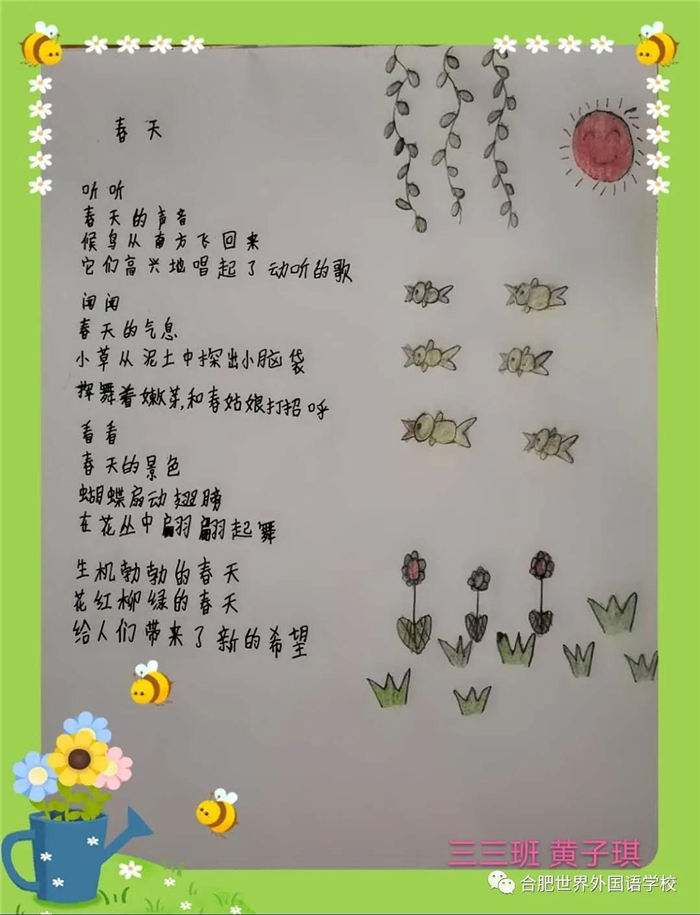 春天
听听
春天的声音
候鸟从南方飞回来
它们高兴地唱起了动听的歌
闻闻
春天的气息
小草从泥土中探出小脑袋
挥舞着嫩芽,和春姑娘打招呼
看看
春天的景色
蝴蝶扇动翅膀
在花丛中翩翩起舞
生机勃勃的春天
花红柳绿的春天
给人们带来了新的希望
三三班 黄子琪
合肥世界外国语学校